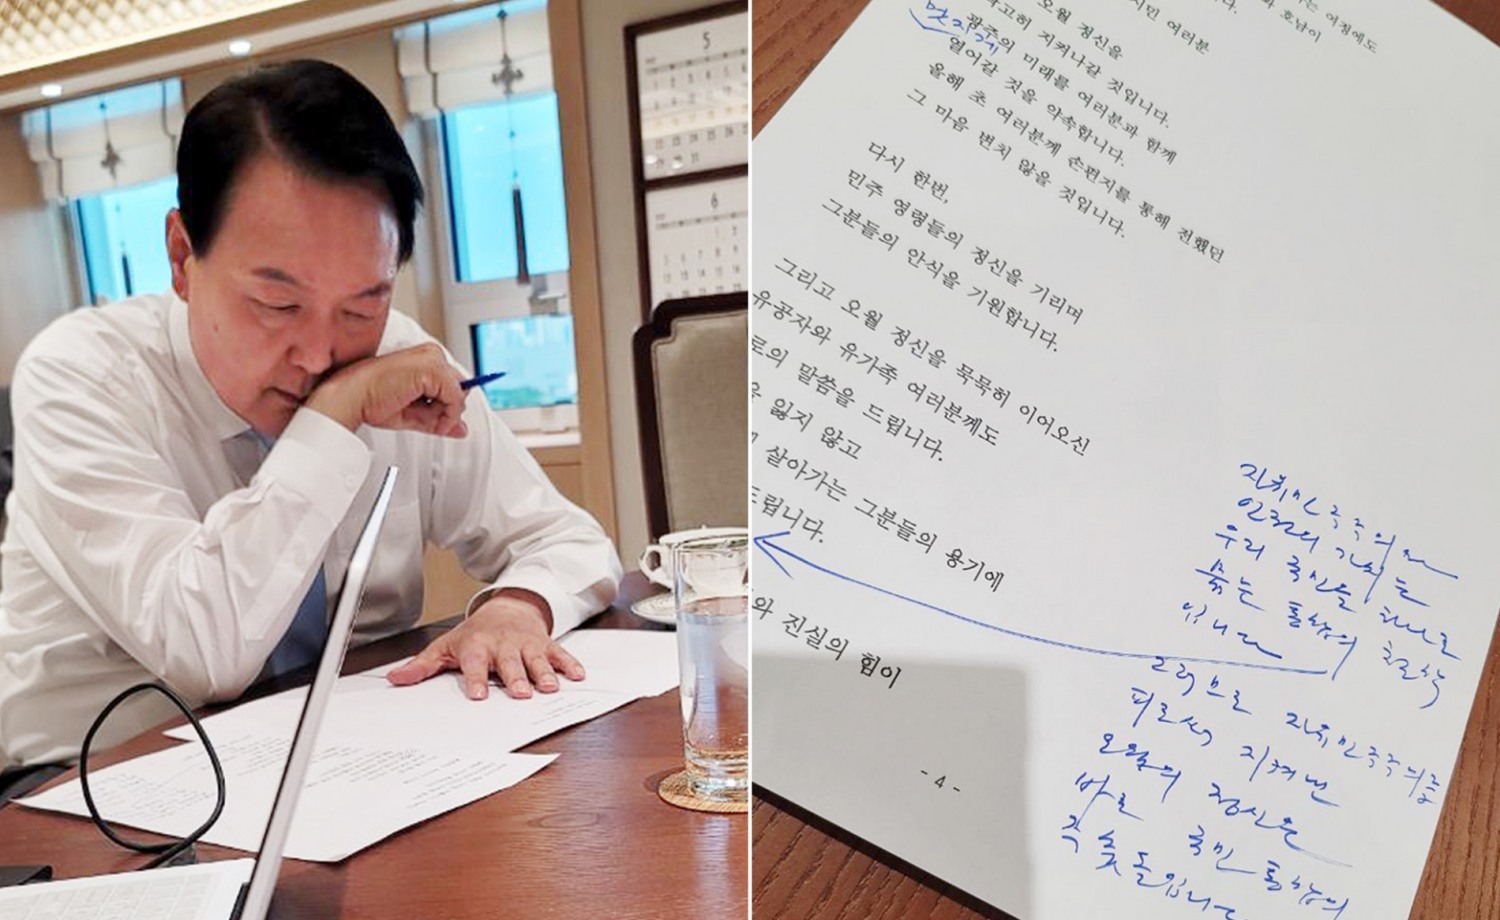 5
6
여정에도
호남이
시민 여러분
오월 정신을
확고히 지켜나갈 것입니다.
멋지게
광주의 미래를 여러분과 함께
열어갈 것을 약속합니다.
올해 초 여러분께 손편지를 통해 전했던
그 마음 변치 않을 것입니다.
다시 한번,
민주 영령들의 정신을 기리며
그분들의 안식을 기원합니다.
그리고 오월 정신을 묵묵히 이어오신
유공자와 유가족 여러분께도
말씀을 드립니다.
잃지 않고
살아가는 그분들의 용기에
드립니다.
진실의 힘이
- 4 -
자유민주주의와
인권의 가치는
우리 국민을 하나로
묶는 통합의 철학
입니다
그러므로 자유민주주의를
피로써 지켜낸
오월의 정신은
바로 국민 통합의
주춧돌입니다